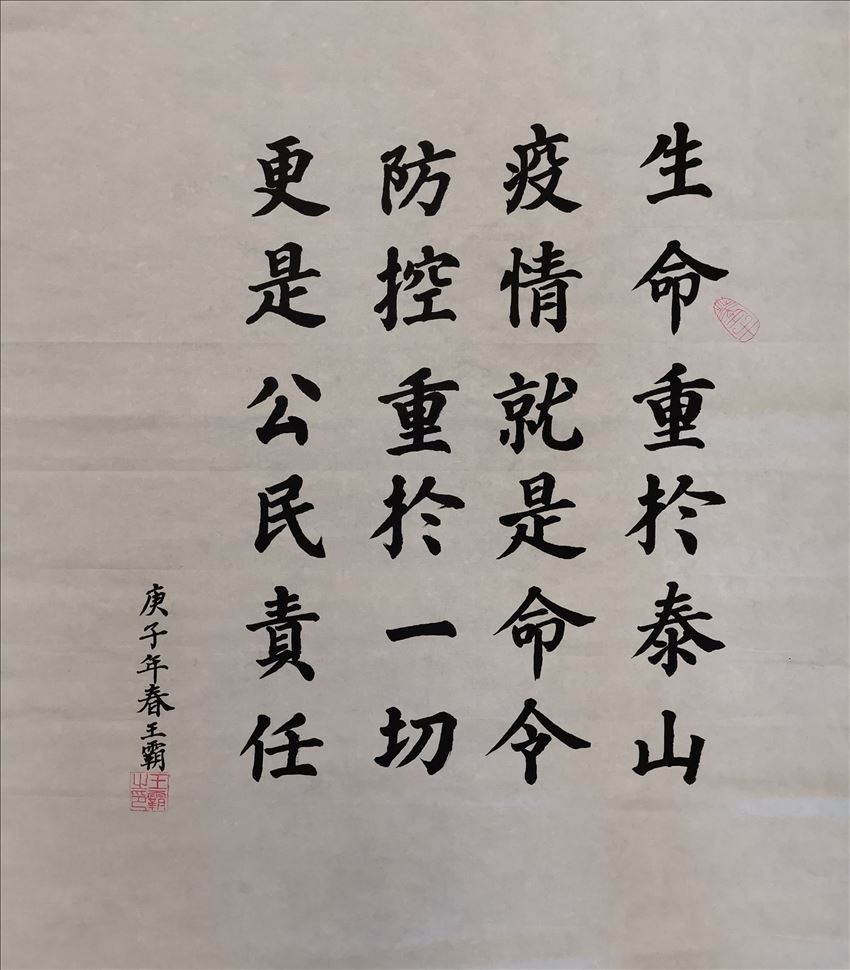 生命重於泰山
疫情就是命令
防控重於一切
更是公民責任
庚子年春王霸
王霸之印